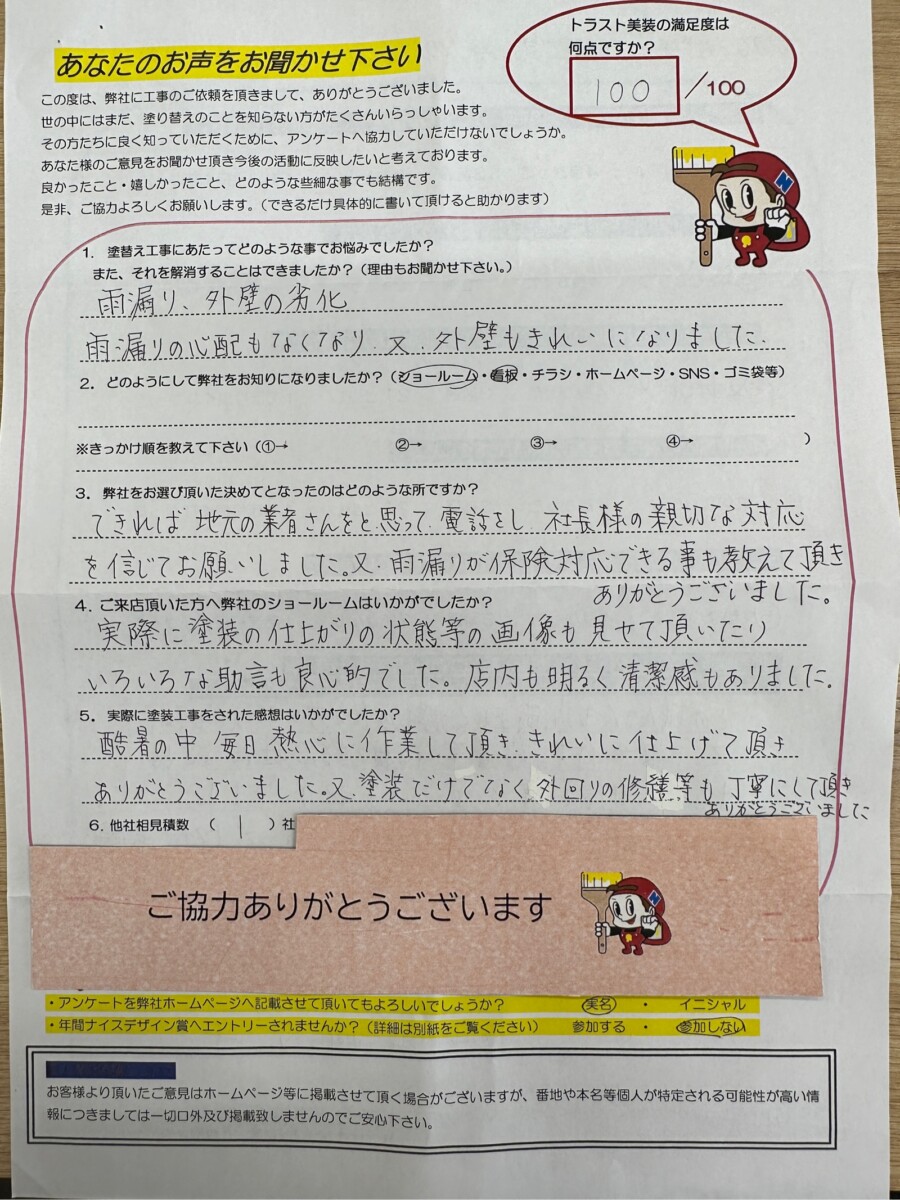 あなたのお声をお聞かせ下さい
トラスト美装の満足度は
何点ですか？
100 /100
この度は、弊社に工事のご依頼を頂きまして、ありがとうございました。
世の中にはまだ、塗り替えのことを知らない方がたくさんいらっしゃいます。
その方たちに良く知っていただくために、アンケートへ協力していただけないでしょうか。
あなた様のご意見をお聞かせ頂き今後の活動に反映したいと考えております。
良かったこと・嬉しかったこと、どのような些細な事でも結構です。
是非、ご協力よろしくお願いします。（できるだけ具体的に書いて頂けると助かります）
N
1．塗替え工事にあたってどのような事でお悩みでしたか？
また、それを解消することはできましたか？（理由もお聞かせ下さい。）
雨漏り、外壁の劣化
雨漏りの心配もなくなり、又、外壁もきれいになりました。
2．どのようにして弊社をお知りになりましたか？（ショールーム・看板・チラシ・ホームページ・SNS・ゴミ袋等）
※きっかけ順を教えて下さい（①→ ②→ ③→ ④→ ）
3．弊社をお選び頂いた決めてとなったのはどのような所ですか？
できれば地元の業者さんをと思って、電話をし、社長様の親切な対応
を信じてお願いしました。又、雨漏りが保険対応できる事も教えて頂き
ありがとうございました。
4．ご来店頂いた方へ弊社のショールームはいかがでしたか？
実際に塗装の仕上がりの状態等の画像も見せて頂いたり
いろいろな助言も良心的でした。店内も明るく清潔感もありました。
5．実際に塗装工事をされた感想はいかがでしたか？
酷暑の中毎日熱心に作業して頂き、きれいに仕上げて頂き
ありがとうございました。又、塗装だけでなく、外回りの修繕等も丁寧にして頂き
ありがとうございました
6．他社相見積数 （ 1 ）社
ご協力ありがとうございます
N
・アンケートを弊社ホームページへ記載させて頂いてもよろしいでしょうか？ 実名 ・ イニシャル
・年間ナイスデザイン賞へエントリーされませんか？（詳細は別紙をご覧ください） 参加する ・ 参加しない
お客様より頂いたご意見はホームページ等に掲載させて頂く場合がございますが、番地や本名等個人が特定される可能性が高い情
報につきましては一切口外及び掲載致しませんのでご安心下さい。